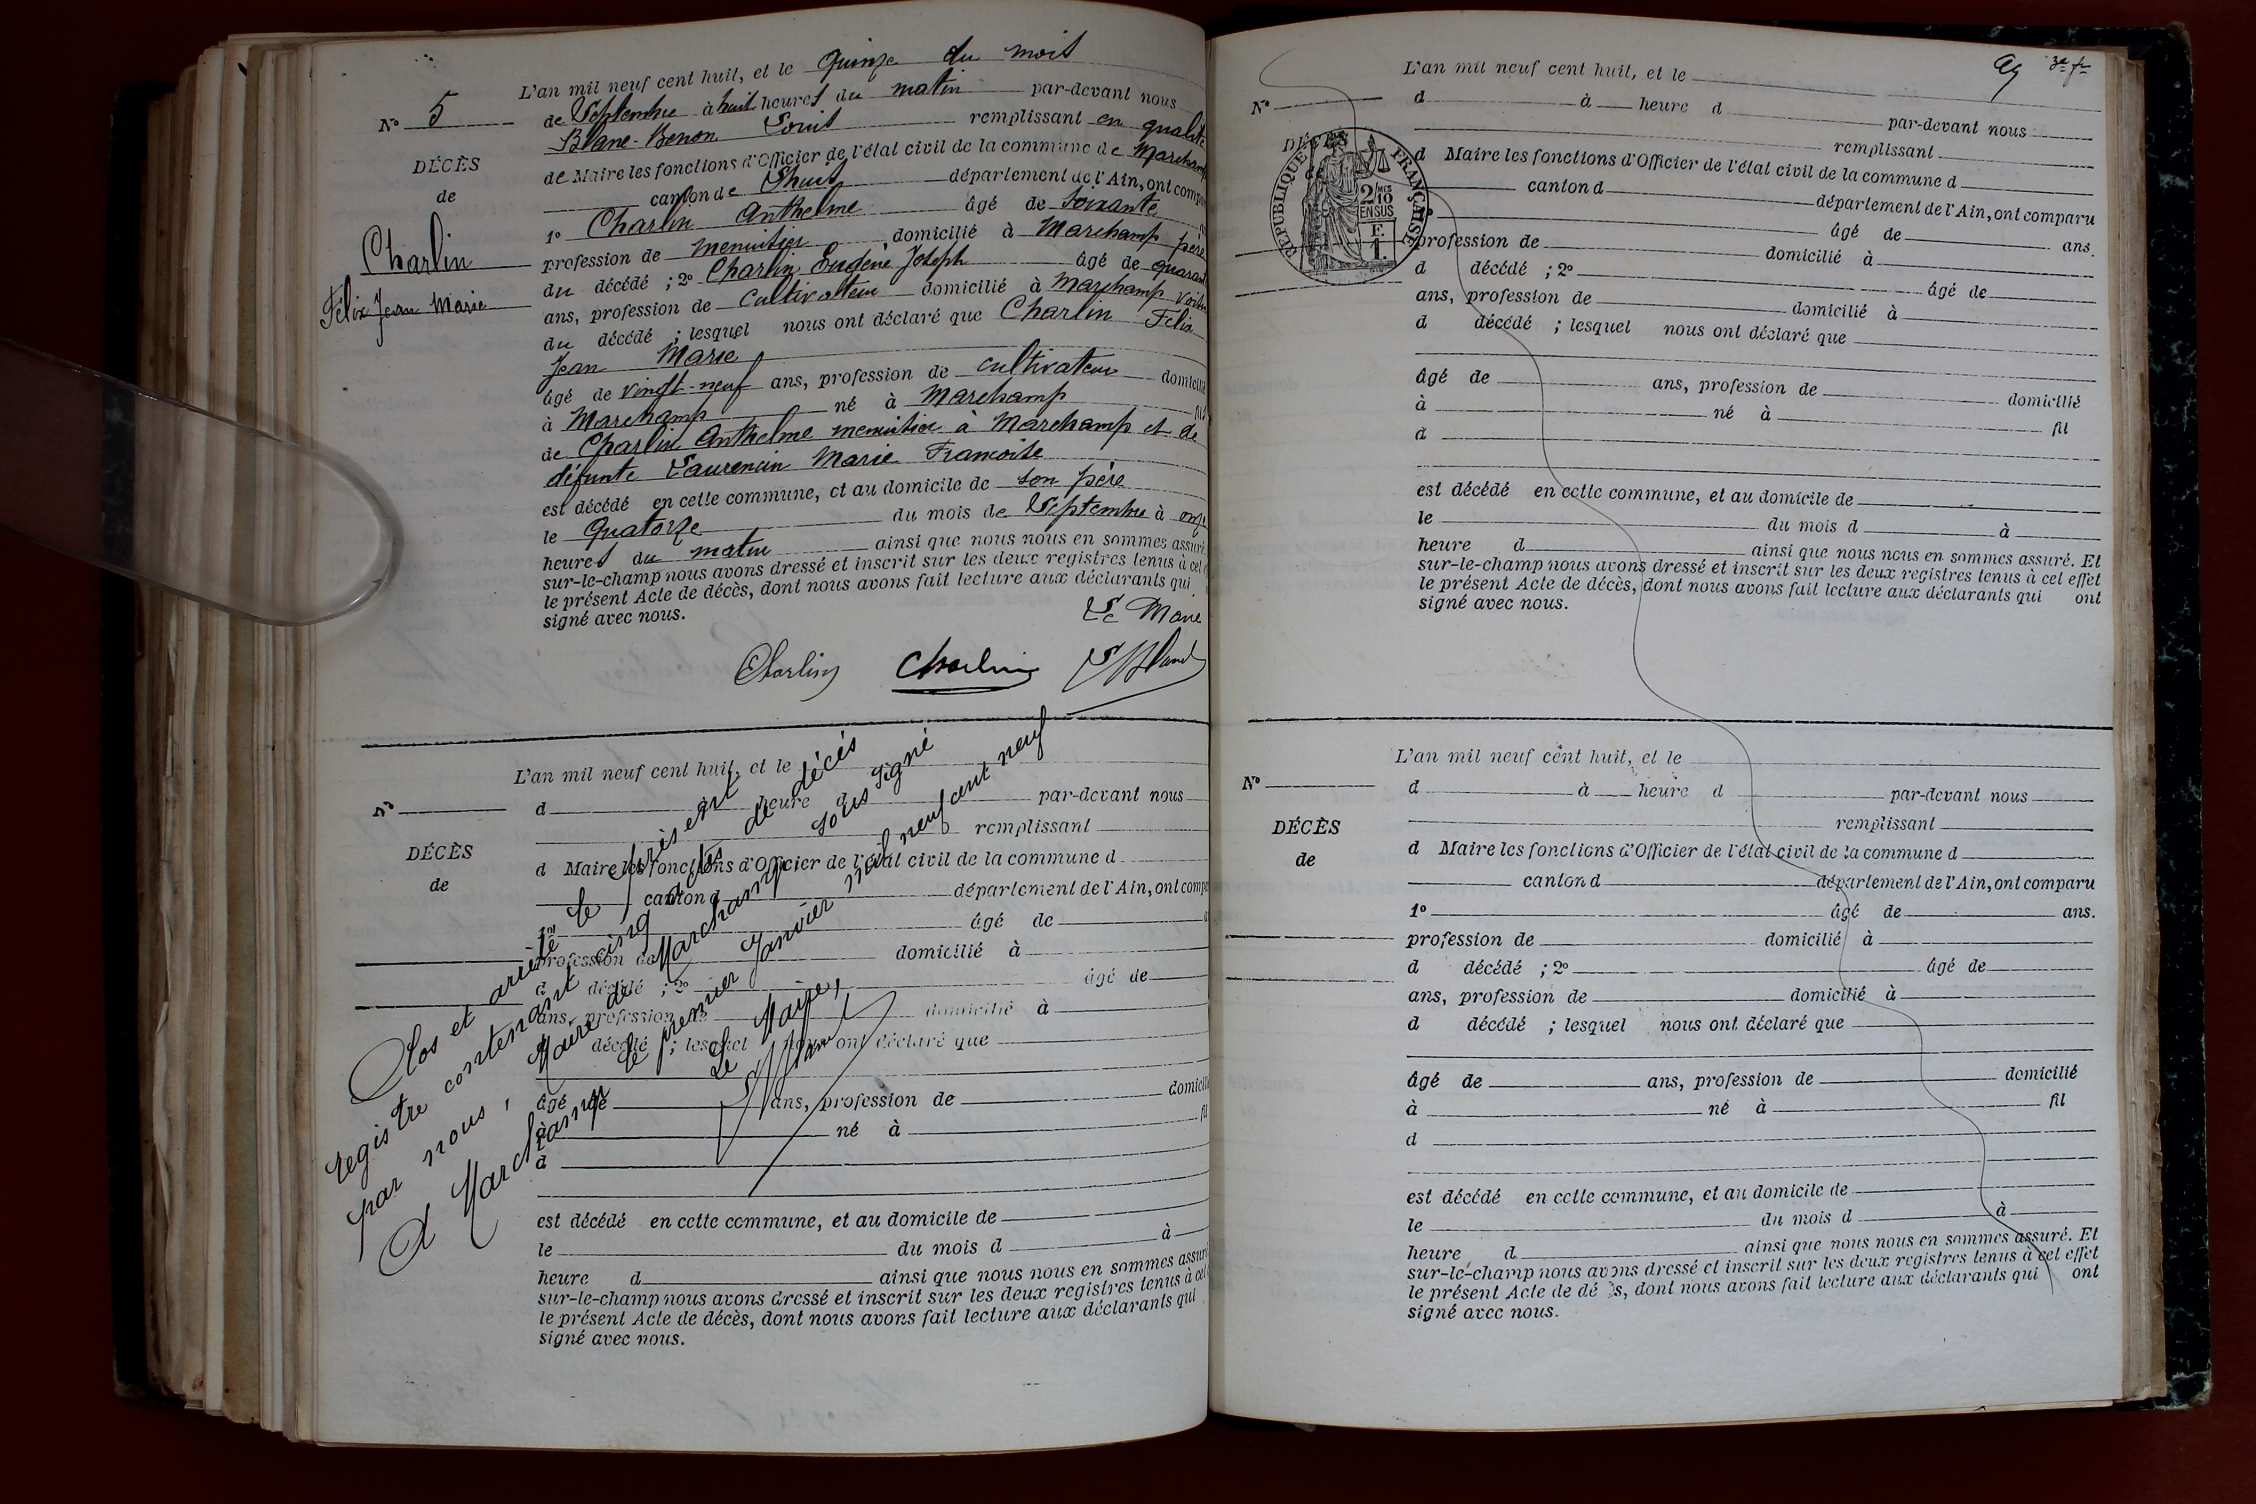 L'an mil neuf cent huit, et le quinze du mois
de Septembre à huit heures du matin par-devant nous
Blanc-Benon Louis remplissant en qualité
de Maire les fonctions d'Officier de l'état civil de la commune de Marchamp
canton de Lhuis département de l'Ain, ont compa
1º Charlin Anthelme âgé de soixante
profession de menuisier domicilié à Marchamp père
du décédé ; 2º Charlin Eugène Joseph âgé de quarante
ans, profession de cultivateur domicilié à Marchamp voisin
du décédé ; lesquel nous ont déclaré que Charlin Félix
Jean Marie
âgé de vingt-neuf ans, profession de cultivateur domicilié
à Marchamp né à Marchamp fils
de Charlin Anthelme menuisier à Marchamp et de
défunte Laurencin Marie Françoise
est décédé en cette commune, et au domicile de son père
le quatorze du mois de Septembre à onze
heures du matin ainsi que nous nous en sommes assuré
sur-le-champ nous avons dressé et inscrit sur les deux registres tenus à cet
le présent Acte de décès, dont nous avons fait lecture aux déclarants qui
signé avec nous.
Le Maire
Charlin Charlin L Blanc
Nº 5
DÉCÈS
de
Charlin
Félix Jean Marie
L'an mil neuf cent huit, et le
d à heure d par-devant nous
remplissant
d Maire les fonctions d'Officier de l'état civil de la commune d
canton d département de l'Ain, ont compa
1º âgé de
profession de domicilié à
d décédé ; 2º âgé de
ans, profession de domicilié à
d décédé ; lesquel nous ont déclaré que
âgé de ans, profession de domicilié
à né à fil
d
est décédé en cette commune, et au domicile de
le du mois d à
heure d ainsi que nous nous en sommes assuré
sur-le-champ nous avons dressé et inscrit sur les deux registres tenus à cet
le présent Acte de décès, dont nous avons fait lecture aux déclarants qui
signé avec nous.
Nº
DÉCÈS
de
Clos et arrêté le présent
registre contenant cinq actes de décès
par nous, Maire de Marchamp, soussigné
A Marchamp le premier Janvier mil neuf cent neuf
Le Maire,
L Blanc
3e fe
L'an mil neuf cent huit, et le
d à heure d par-devant nous
remplissant
d Maire les fonctions d'Officier de l'état civil de la commune d
canton d département de l'Ain, ont comparu
âgé de ans.
profession de domicilié à
d décédé ; 2º âgé de
ans, profession de domicilié à
d décédé ; lesquel nous ont déclaré que
âgé de ans, profession de domicilié
à né à fil
d
est décédé en cette commune, et au domicile de
le du mois d à
heure d ainsi que nous nous en sommes assuré. Et
sur-le-champ nous avons dressé et inscrit sur les deux registres tenus à cet effet
le présent Acte de décès, dont nous avons fait lecture aux déclarants qui ont
signé avec nous.
Nº
DÉCÈS
RÉPUBLIQUE FRANÇAISE
2/10 MES
EN SUS
F.
1.
L'an mil neuf cent huit, et le
d à heure d par-devant nous
remplissant
d Maire les fonctions d'Officier de l'état civil de la commune d
canton d département de l'Ain, ont comparu
1º âgé de ans.
profession de domicilié à
d décédé ; 2º âgé de
ans, profession de domicilié à
d décédé ; lesquel nous ont déclaré que
âgé de ans, profession de domicilié
à né à fil
d
est décédé en cette commune, et au domicile de
le du mois d à
heure d ainsi que nous nous en sommes assuré. Et
sur-le-champ nous avons dressé et inscrit sur les deux registres tenus à cet effet
le présent Acte de décès, dont nous avons fait lecture aux déclarants qui ont
signé avec nous.
Nº
DÉCÈS
de